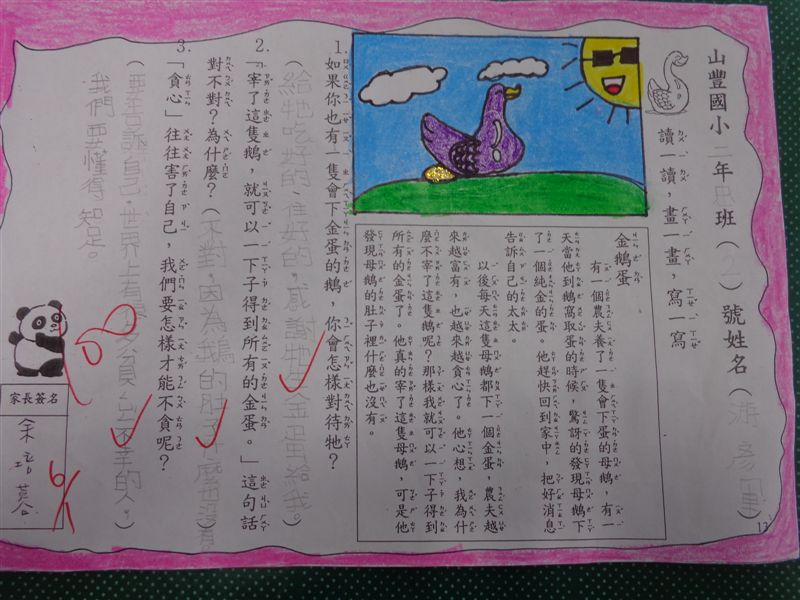 山豐國小二年 班（ ）號姓名（ ）
讀一讀，畫一畫，寫一寫
金鵝蛋
有一個農夫養了一隻會下蛋的母鵝，有一
天當他到鵝窩取蛋的時候，驚訝的發現母鵝下
了一個純金的蛋。他趕快回到家中，把好消息
告訴自己的太太。
以後每天這隻母鵝都下一個金蛋，農夫越
來越富有，也越來越貪心了。他心想，我為什
麼不宰了這隻鵝呢？那樣我就可以一下子得到
所有的金蛋了。他真的宰了這隻母鵝，可是他
發現母鵝的肚子裡什麼也沒有。
13
1.如果你也有一隻會下金蛋的鵝，你會怎樣對待牠？
（給牠吃好的，住好的，感謝牠 金蛋給我。）
2.「宰了這隻鵝，就可以一下子得到所有的金蛋。」這句話
對不對？為什麼？（不對，因為鵝的肚子 麼也沒有
3.「貪心」往往害了自己，我們要怎樣才能不貪呢？
（要告訴自己，世界上有很多貧 不幸的人。）
我們要懂得知足。
100
家長簽名
余
6/1